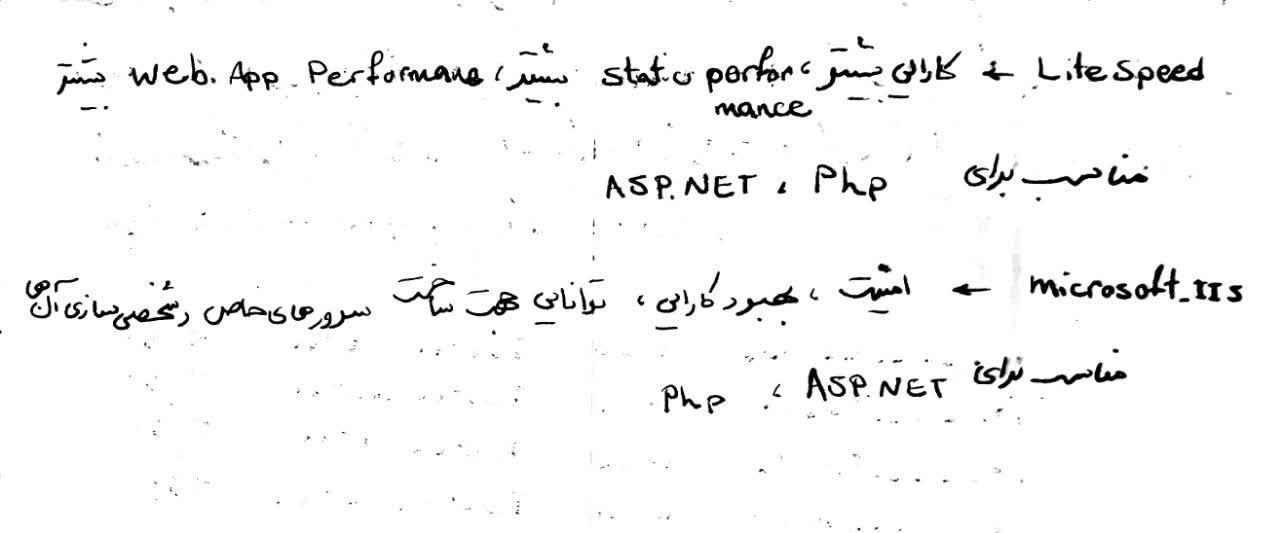 LiteSpeed ← کارائی بیشتر، static performance بیشتر، Web.App Performane بیشتر
مناسب برای Php ، ASP.NET
microsoft_IIS ← امنیت، بهبود کارایی، توانایی جهت ساخت سرورهای خاص و شخصی سازی آن ها
مناسب برای ASP.NET ، Php